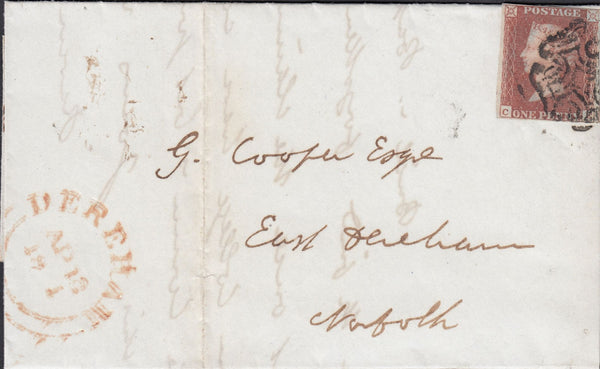 POSTAGE
C
ONE PE
G. Cooper Esqe
East Dereham
Norfolk
DEREHAM
AP 19